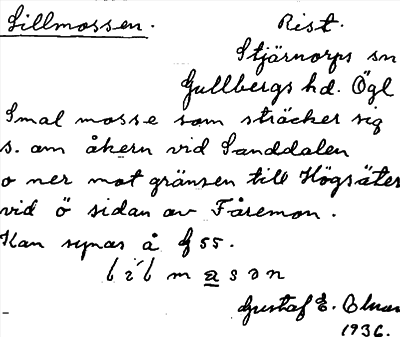 Lillmossen. Rist.
Stjärnorps sn
Gullbergs hd. Ögl
Smal mosse som sträcker sig
s. om åkern vid Sanddalen
o ner mot gränsen till Högsäter
vid ö sidan av Fåremon.
Kan synas å f 55.
Gustaf E.
1936.